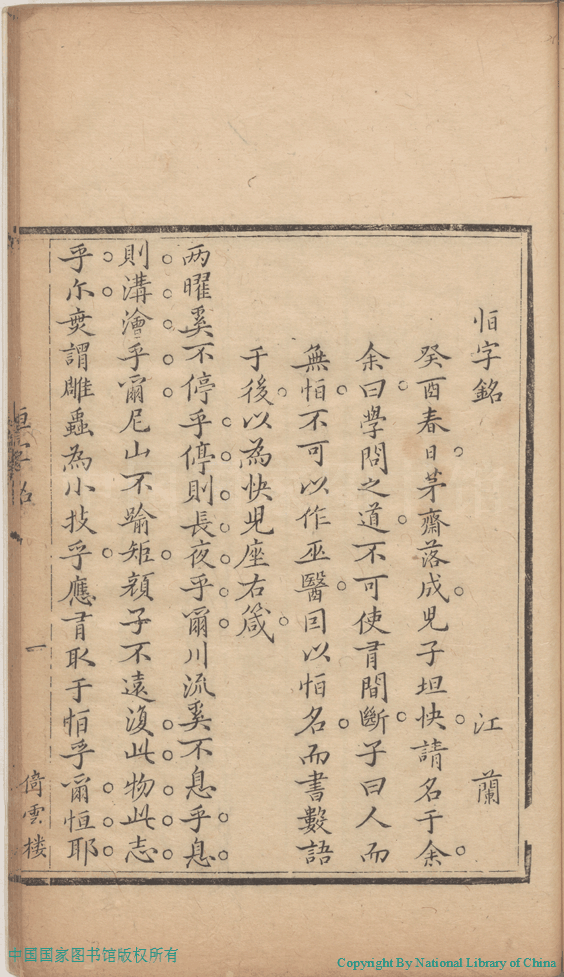 恒字銘
江蘭
癸酉春日茅齋落成兒子坦快請名于余
余曰學問之道不可使有間斷子曰人而
無恒不可以作巫醫因以恒名而書數語
于後以為快兒座右箴
两曜奚不停乎停則長夜乎爾川流奚不息乎息
則溝澮乎爾尼山不踰矩顔子不遠復此物此志
乎尒奚謂雕蟲為小技乎應有取于恒乎爾恒耶
恒字銘
一
倚雲楼
中国国家图书馆版权所有
Copyright By National Library of China